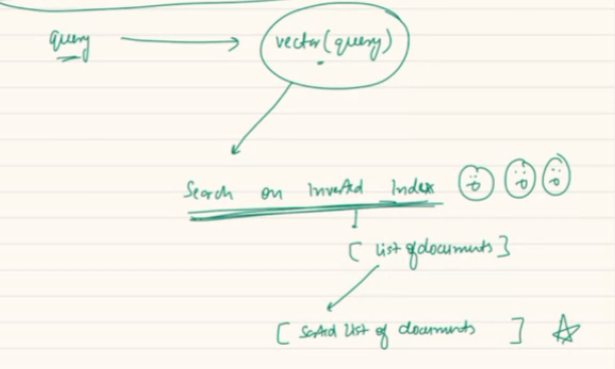 query → vector(query)
Search on Inverted Index
[ list of documents ]
[ Sorted list of documents ]